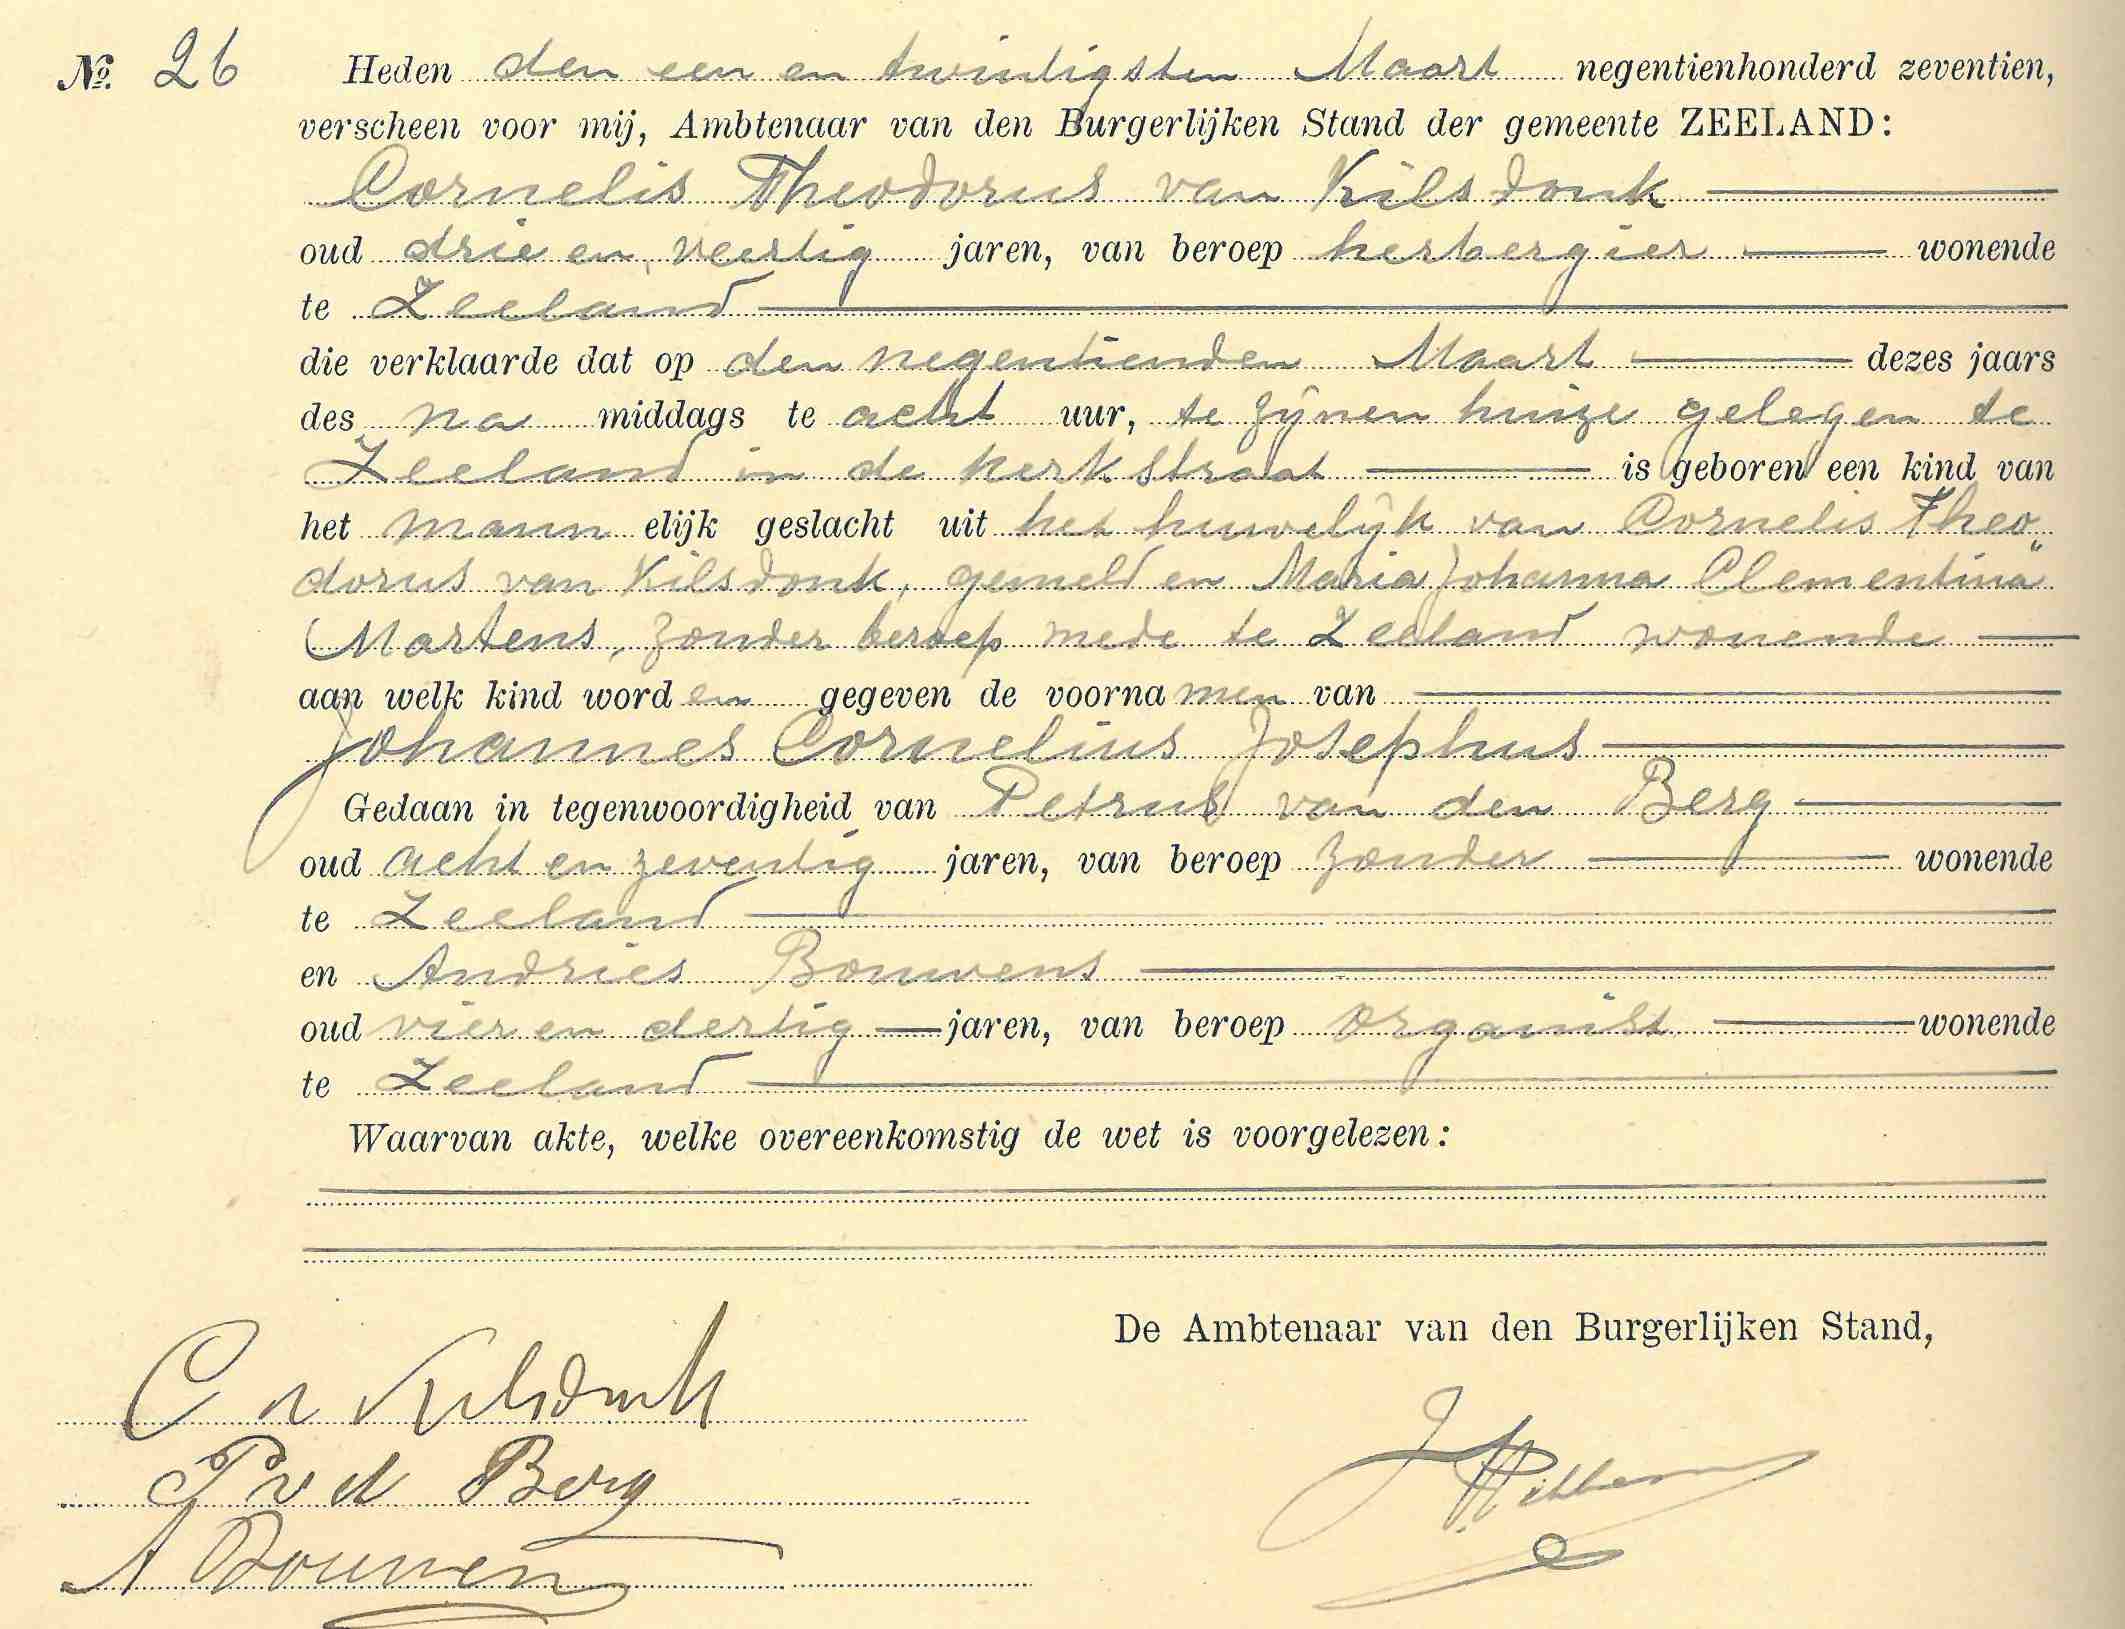 No. 26 Heden den een en twintigsten Maart negentienhonderd zeventien,
verscheen voor mij, Ambtenaar van den Burgerlijken Stand der gemeente ZEELAND:
Cornelis Theodorus van Kilsdonk
oud drie en veertig jaren, van beroep herbergier wonende
te Zeeland
die verklaarde dat op den negentienden Maart dezes jaars
des na middags te acht uur, te zijnen huize gelegen te
Zeeland in de Kerkstraat is geboren een kind van
het mann elijk geslacht uit het huwelijk van Cornelis Theo„
dorus van Kilsdonk, gemeld en Maria Johanna Clementina
Martens, zonder beroep mede te Zeeland wonende
aan welk kind worden gegeven de voornamen van
Johannes Cornelius Josephus
Gedaan in tegenwoordigheid van Petrus van den Berg
oud acht en zeventig jaren, van beroep zonder wonende
te Zeeland
en Andries Bouwens
oud vier en dertig jaren, van beroep organist wonende
te Zeeland
Waarvan akte, welke overeenkomstig de wet is voorgelezen:
De Ambtenaar van den Burgerlijken Stand,
C v Kilsdonk
P v d Berg
A Bouwens